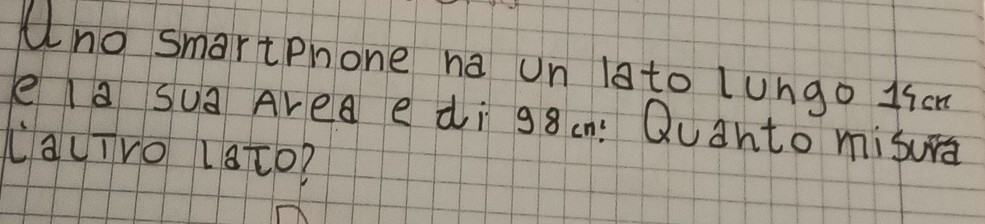 Uno smartphone ha un lato lungo 14cm
e la sua Area e di 98 cm². Quanto misura
L'altro lato?